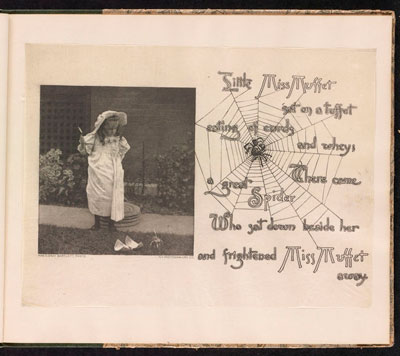 Little Miss Muffet
sat on a tuffet
eating of curds
and whey;
There came
a great Spider
Who sat down beside her
and frightened Miss Muffet
away.